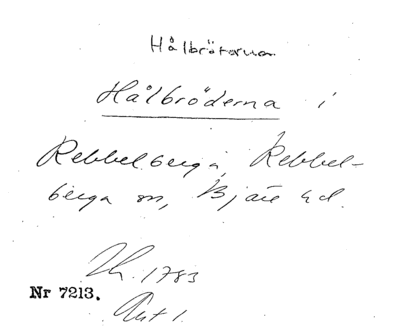 Hålbrötarna
Hålbröderna i
Rebbelberga, Rebbel-
berga sn, Bjäre hd.
Lh. 1783
Nr 7213. Akt 1.